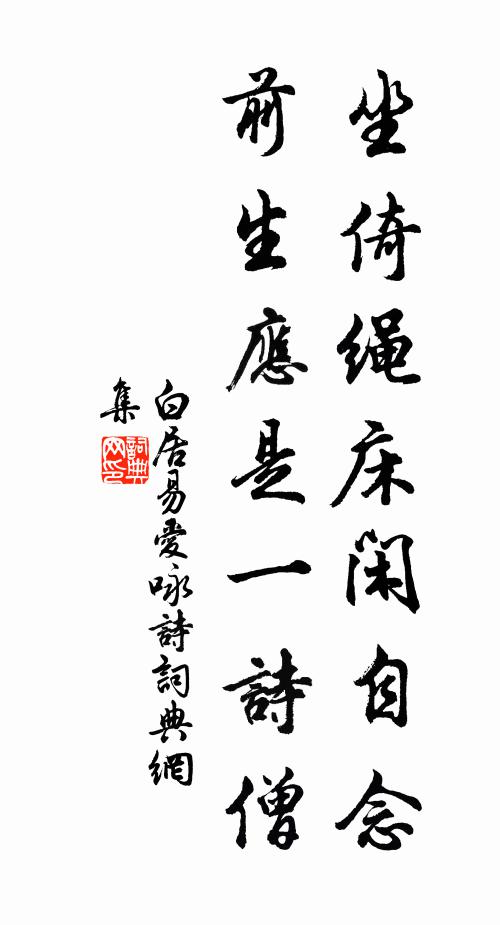 坐倚绳床閑自念
前生應是一詩僧
白居易愛咏詩詞典網
集
詞典
网印